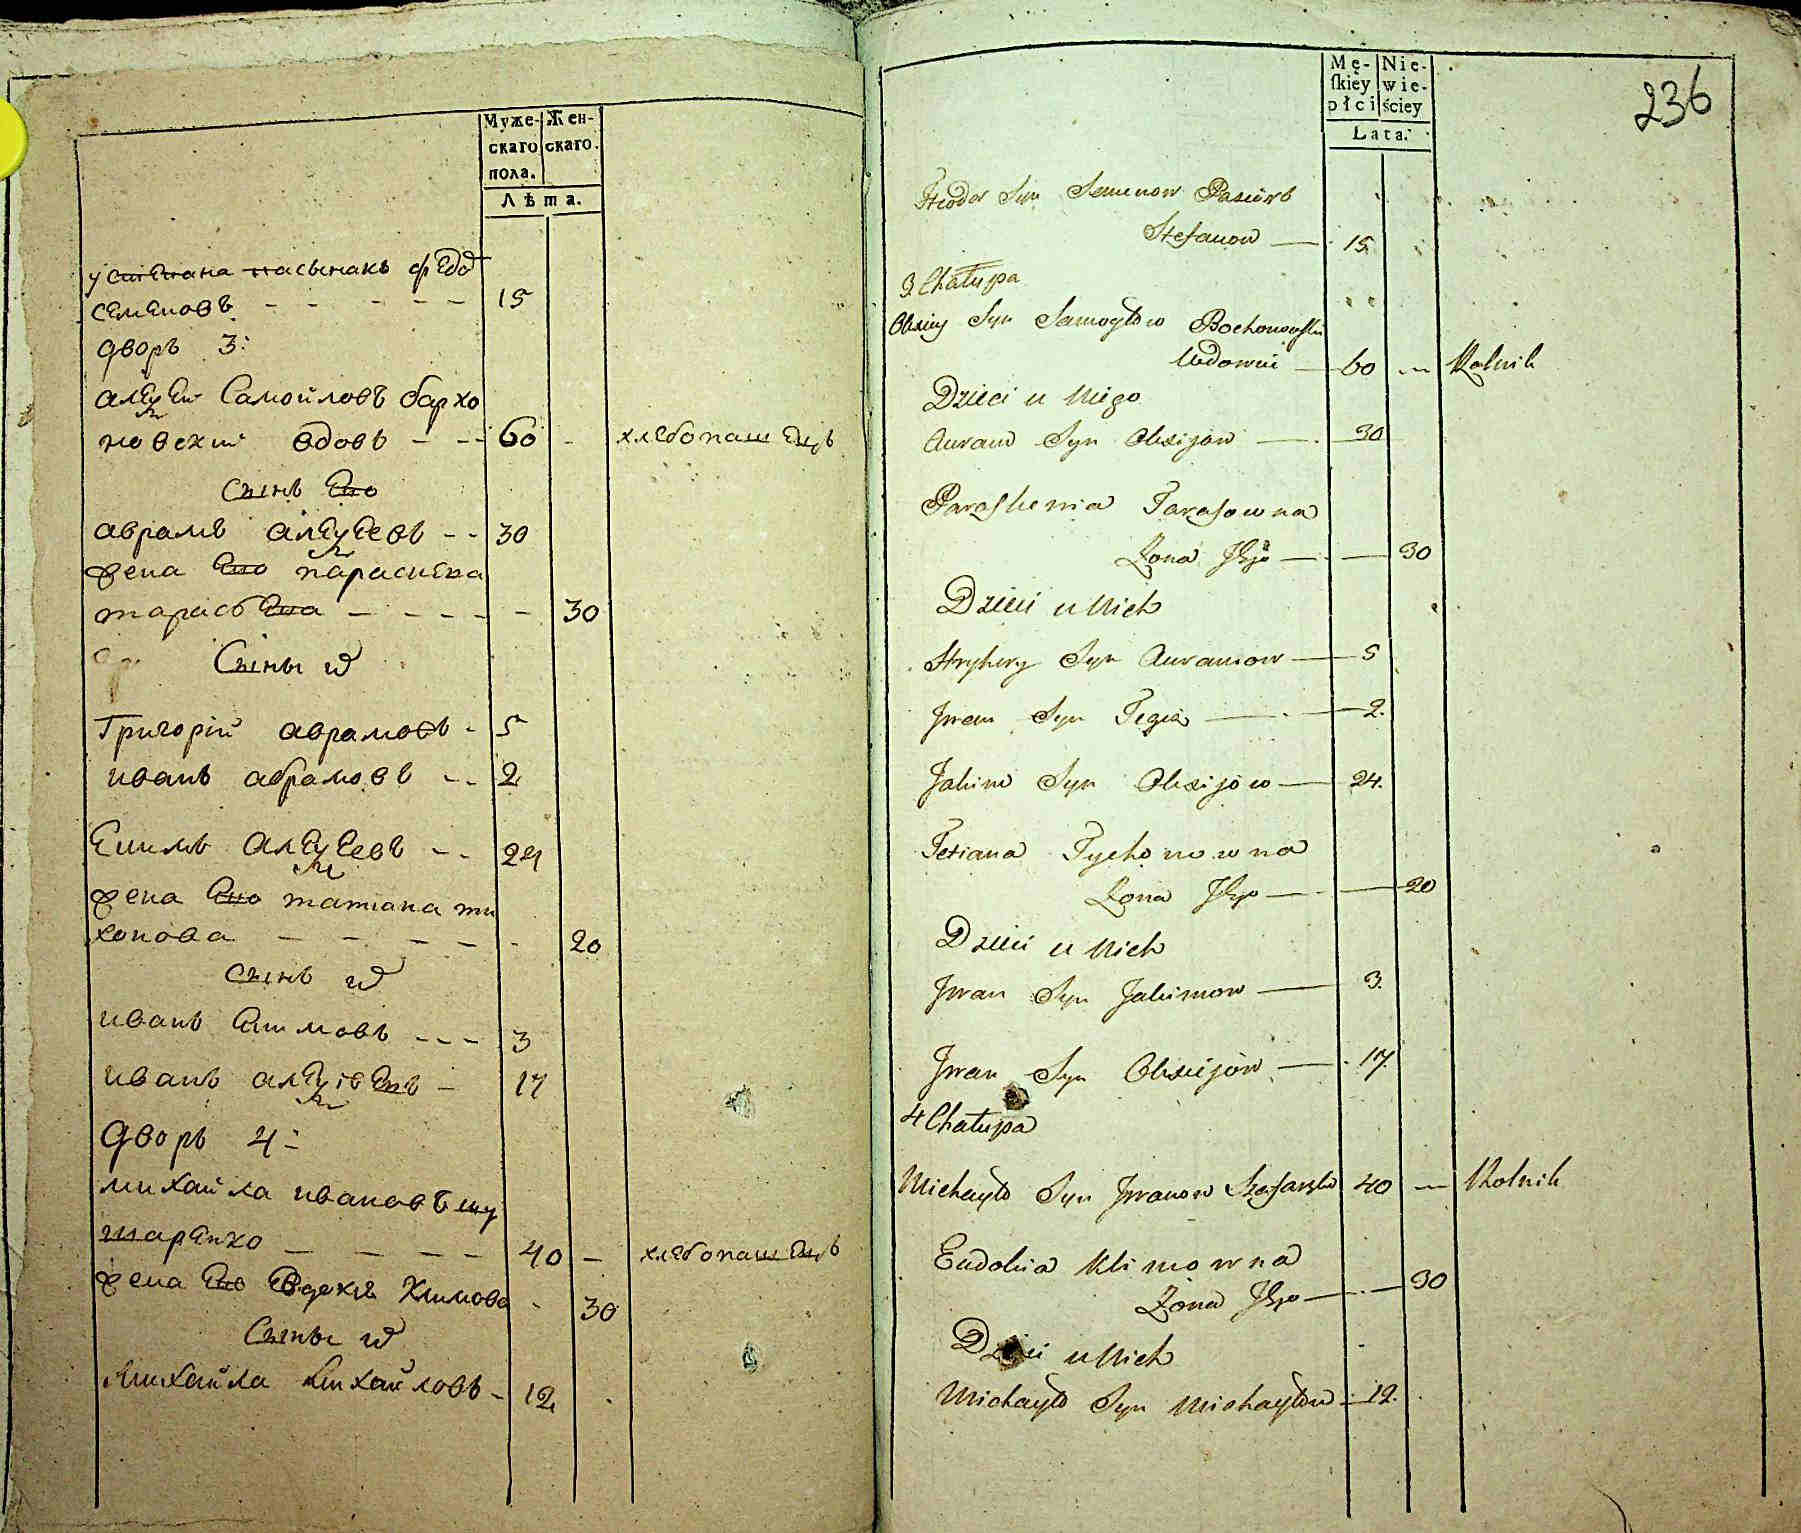 Муже-
скаго
пола.
Жен-
скаго.
Лѣта.
у степана пасынакъ федо
семеновъ - - - - - 15
дворъ 3:
алексеи Самойловъ бархо
новскии вдовъ - - 60 - хлебопашецъ
Сынъ Ево
аврамъ алексеевъ - - 30
жена Ево параскева
тарасьева - - - - - 30
Сыны их
Григорій аврамовъ - 5
иванъ абрамовъ - - 2
Екимъ алексеевъ - - 24
жена Ево татиана ти
хонова - - - - - 20
сынъ их
иванъ Екимовъ - - - 3
иванъ алексеевъ - 17
дворъ 4:
михайла ивановъ шу
шаренко - - - - 40 - хлебопашецъ
жена Ево Евдокия Климова - 30
Сыны их
Михайла Михайловъ - 12
236
Mę-
ſkiey
płci
Nie-
wie-
ściey
Lata.
Fteodor Syn Semenow Pasierb
Stefanow — 15.
3 Chałupa
Olexiey Syn Samoyłow Bochonowski
Wdowiec — 60 — Rolnik
Dzieci u Niego
Auram Syn Olexijow — 30
Paraskewia Tarasowna
Żona Jego — — 30
Dzieci u Nich
Hryhory Syn Auramow — 5
Jwan Syn Tegia — 2.
Jakim Syn Olexijow — 24.
Tetiana Tychonowna
Żona Jego — — 20
Dzieci u Nich
Jwan Syn Jakimow — 3.
Jwan Syn Olexiejow — 17.
4 Chałupa
Michayło Syn Jwanow 40 — Rolnik
Eudokia Klimowna
Żona Jego — — 30
Dzieci u Nich
Michayło Syn Michayłow — 12.